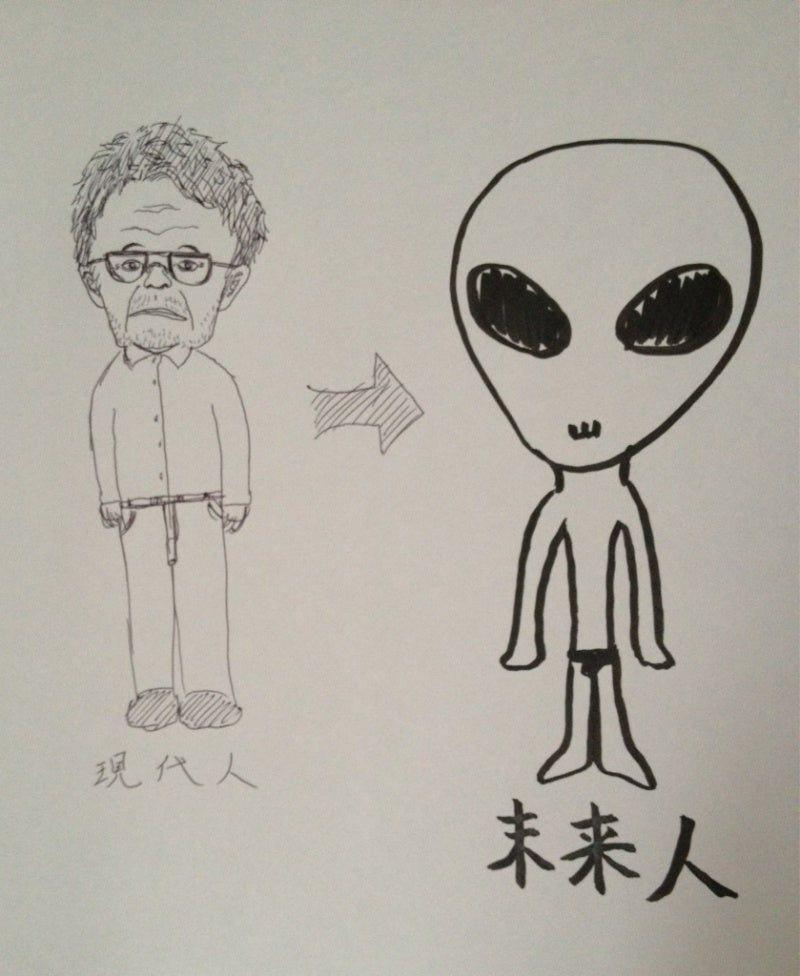 現代人
未来人